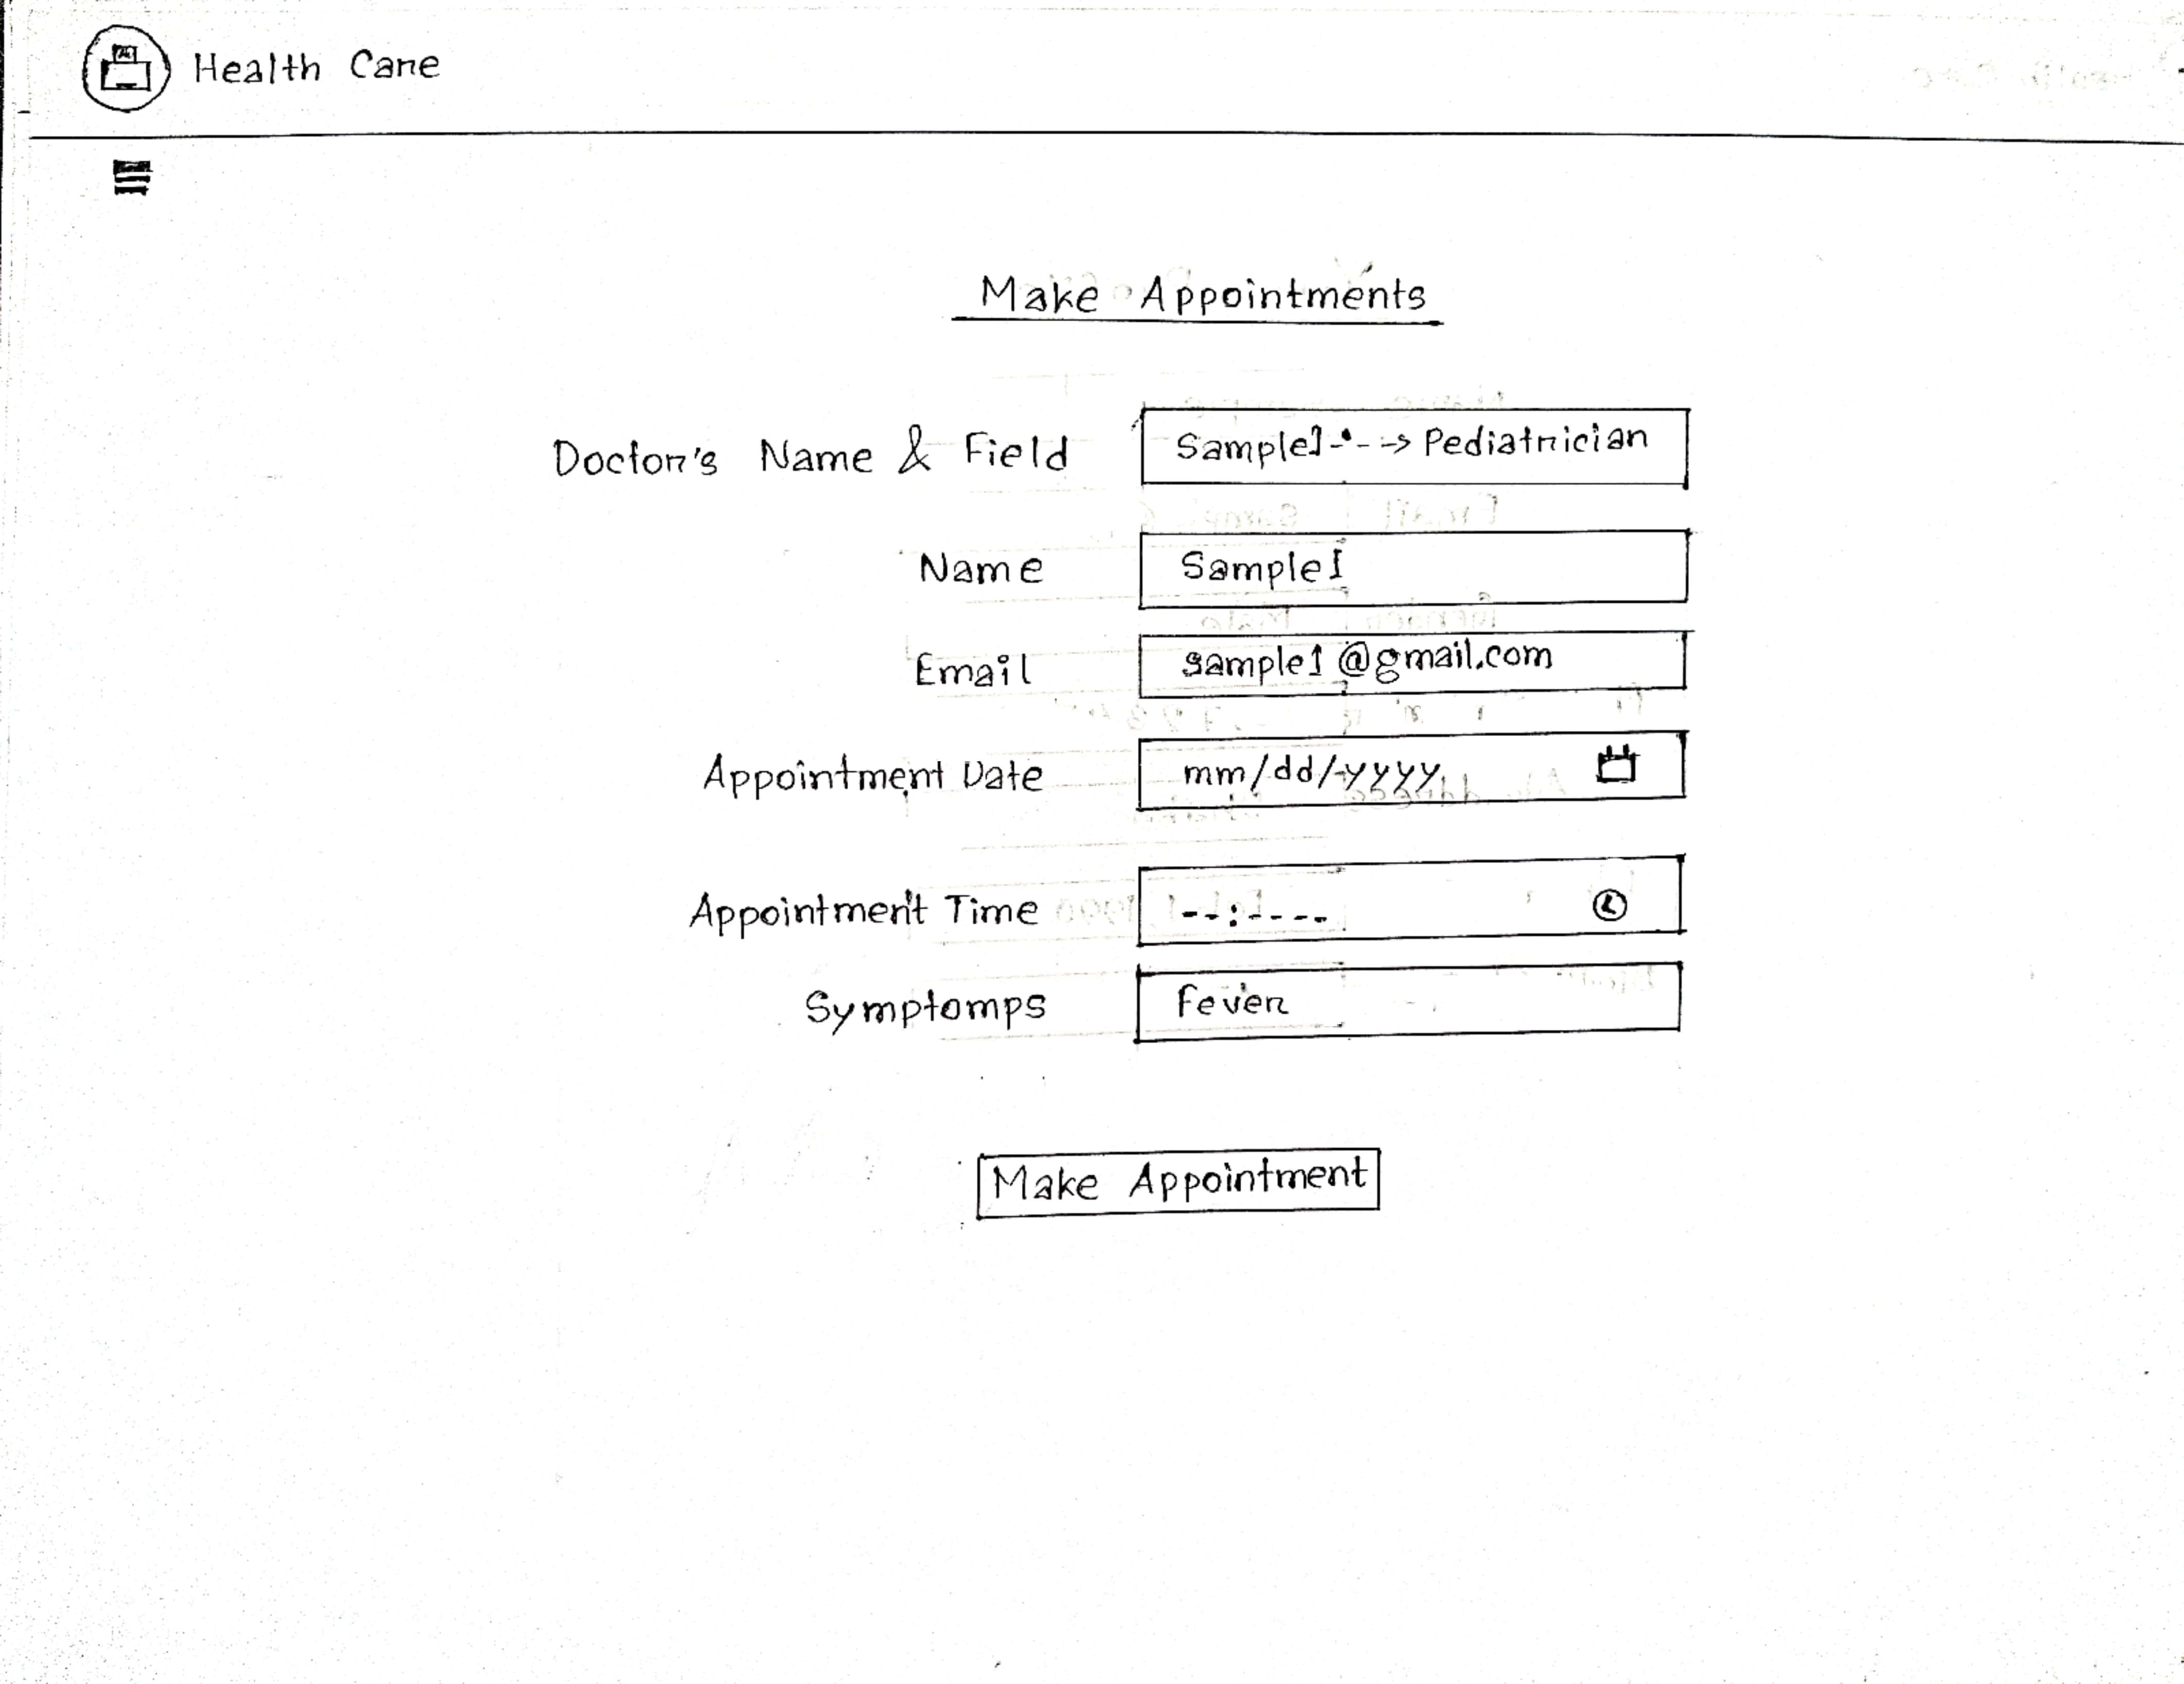 Health Care
Make Appointments
Doctor's Name & Field
Sample1---> Pediatrician
Name
Sample1
Email
sample1@gmail.com
Appointment Date
mm/dd/yyyy
Appointment Time
--:----
Symptomps
Fever
Make Appointment